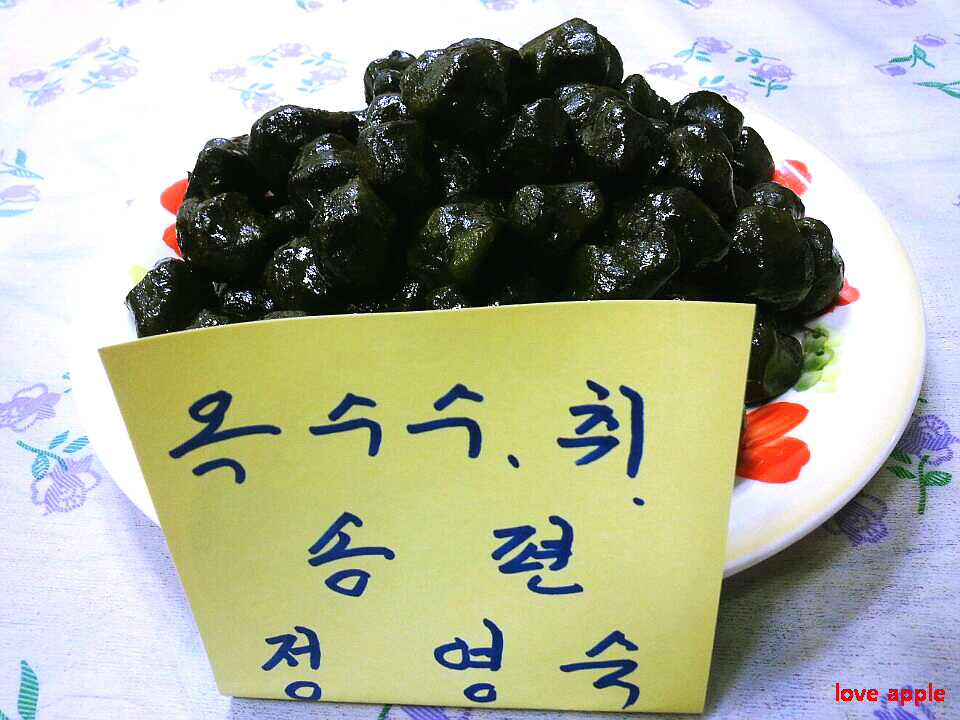 옥수수. 취.
송 편
정 영숙
love apple